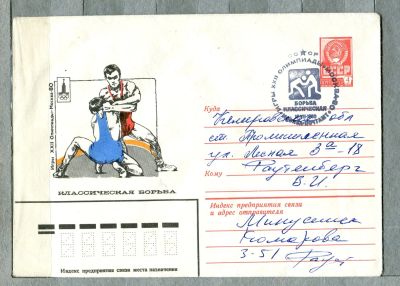 Игры XXII Олимпиады Москва·80
КЛАССИЧЕСКАЯ БОРЬБА
Индекс предприятия связи места назначения
СССР
ИГРЫ XXII ОЛИМПИАДЫ
БОРЬБА
КЛАССИЧЕСКАЯ
Куда
Кемеровская обл
ст. Промышленная
ул. Лесная 3а-18
Кому
Раутенберг
В.И.
Индекс предприятия связи
и адрес отправителя
Минусинск
Комарова
3-51